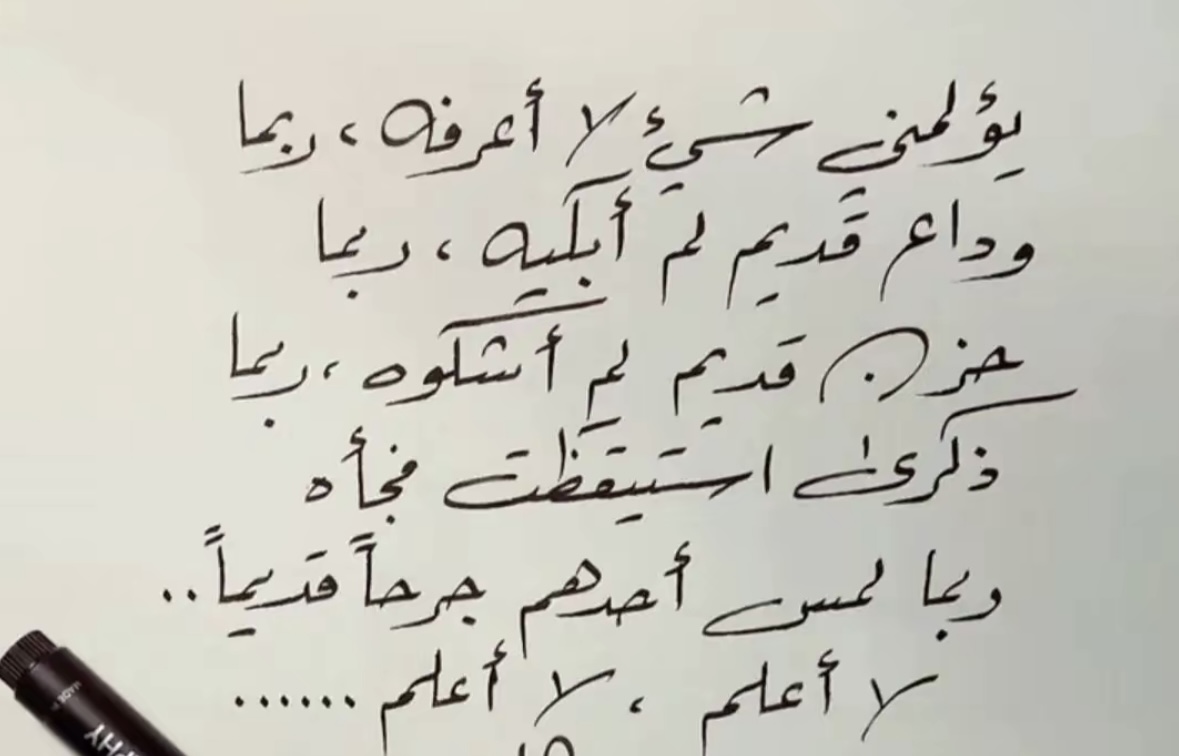 يؤلمني شيءٌ لا أعرفه، ربما
وداع قديم لم أبكيه، ربما
حزن قديم لم أشكوه، ربما
ذكرى استيقظت فجأه
وبما لمس أحدهم جرحاً قديماً..
لا أعلم، لا أعلم ......